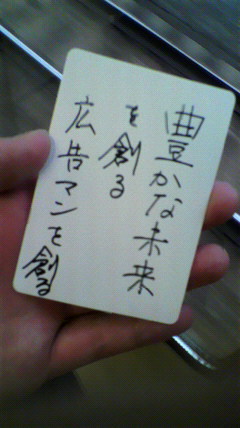 豊かな未来
を創る
広告マンを創る